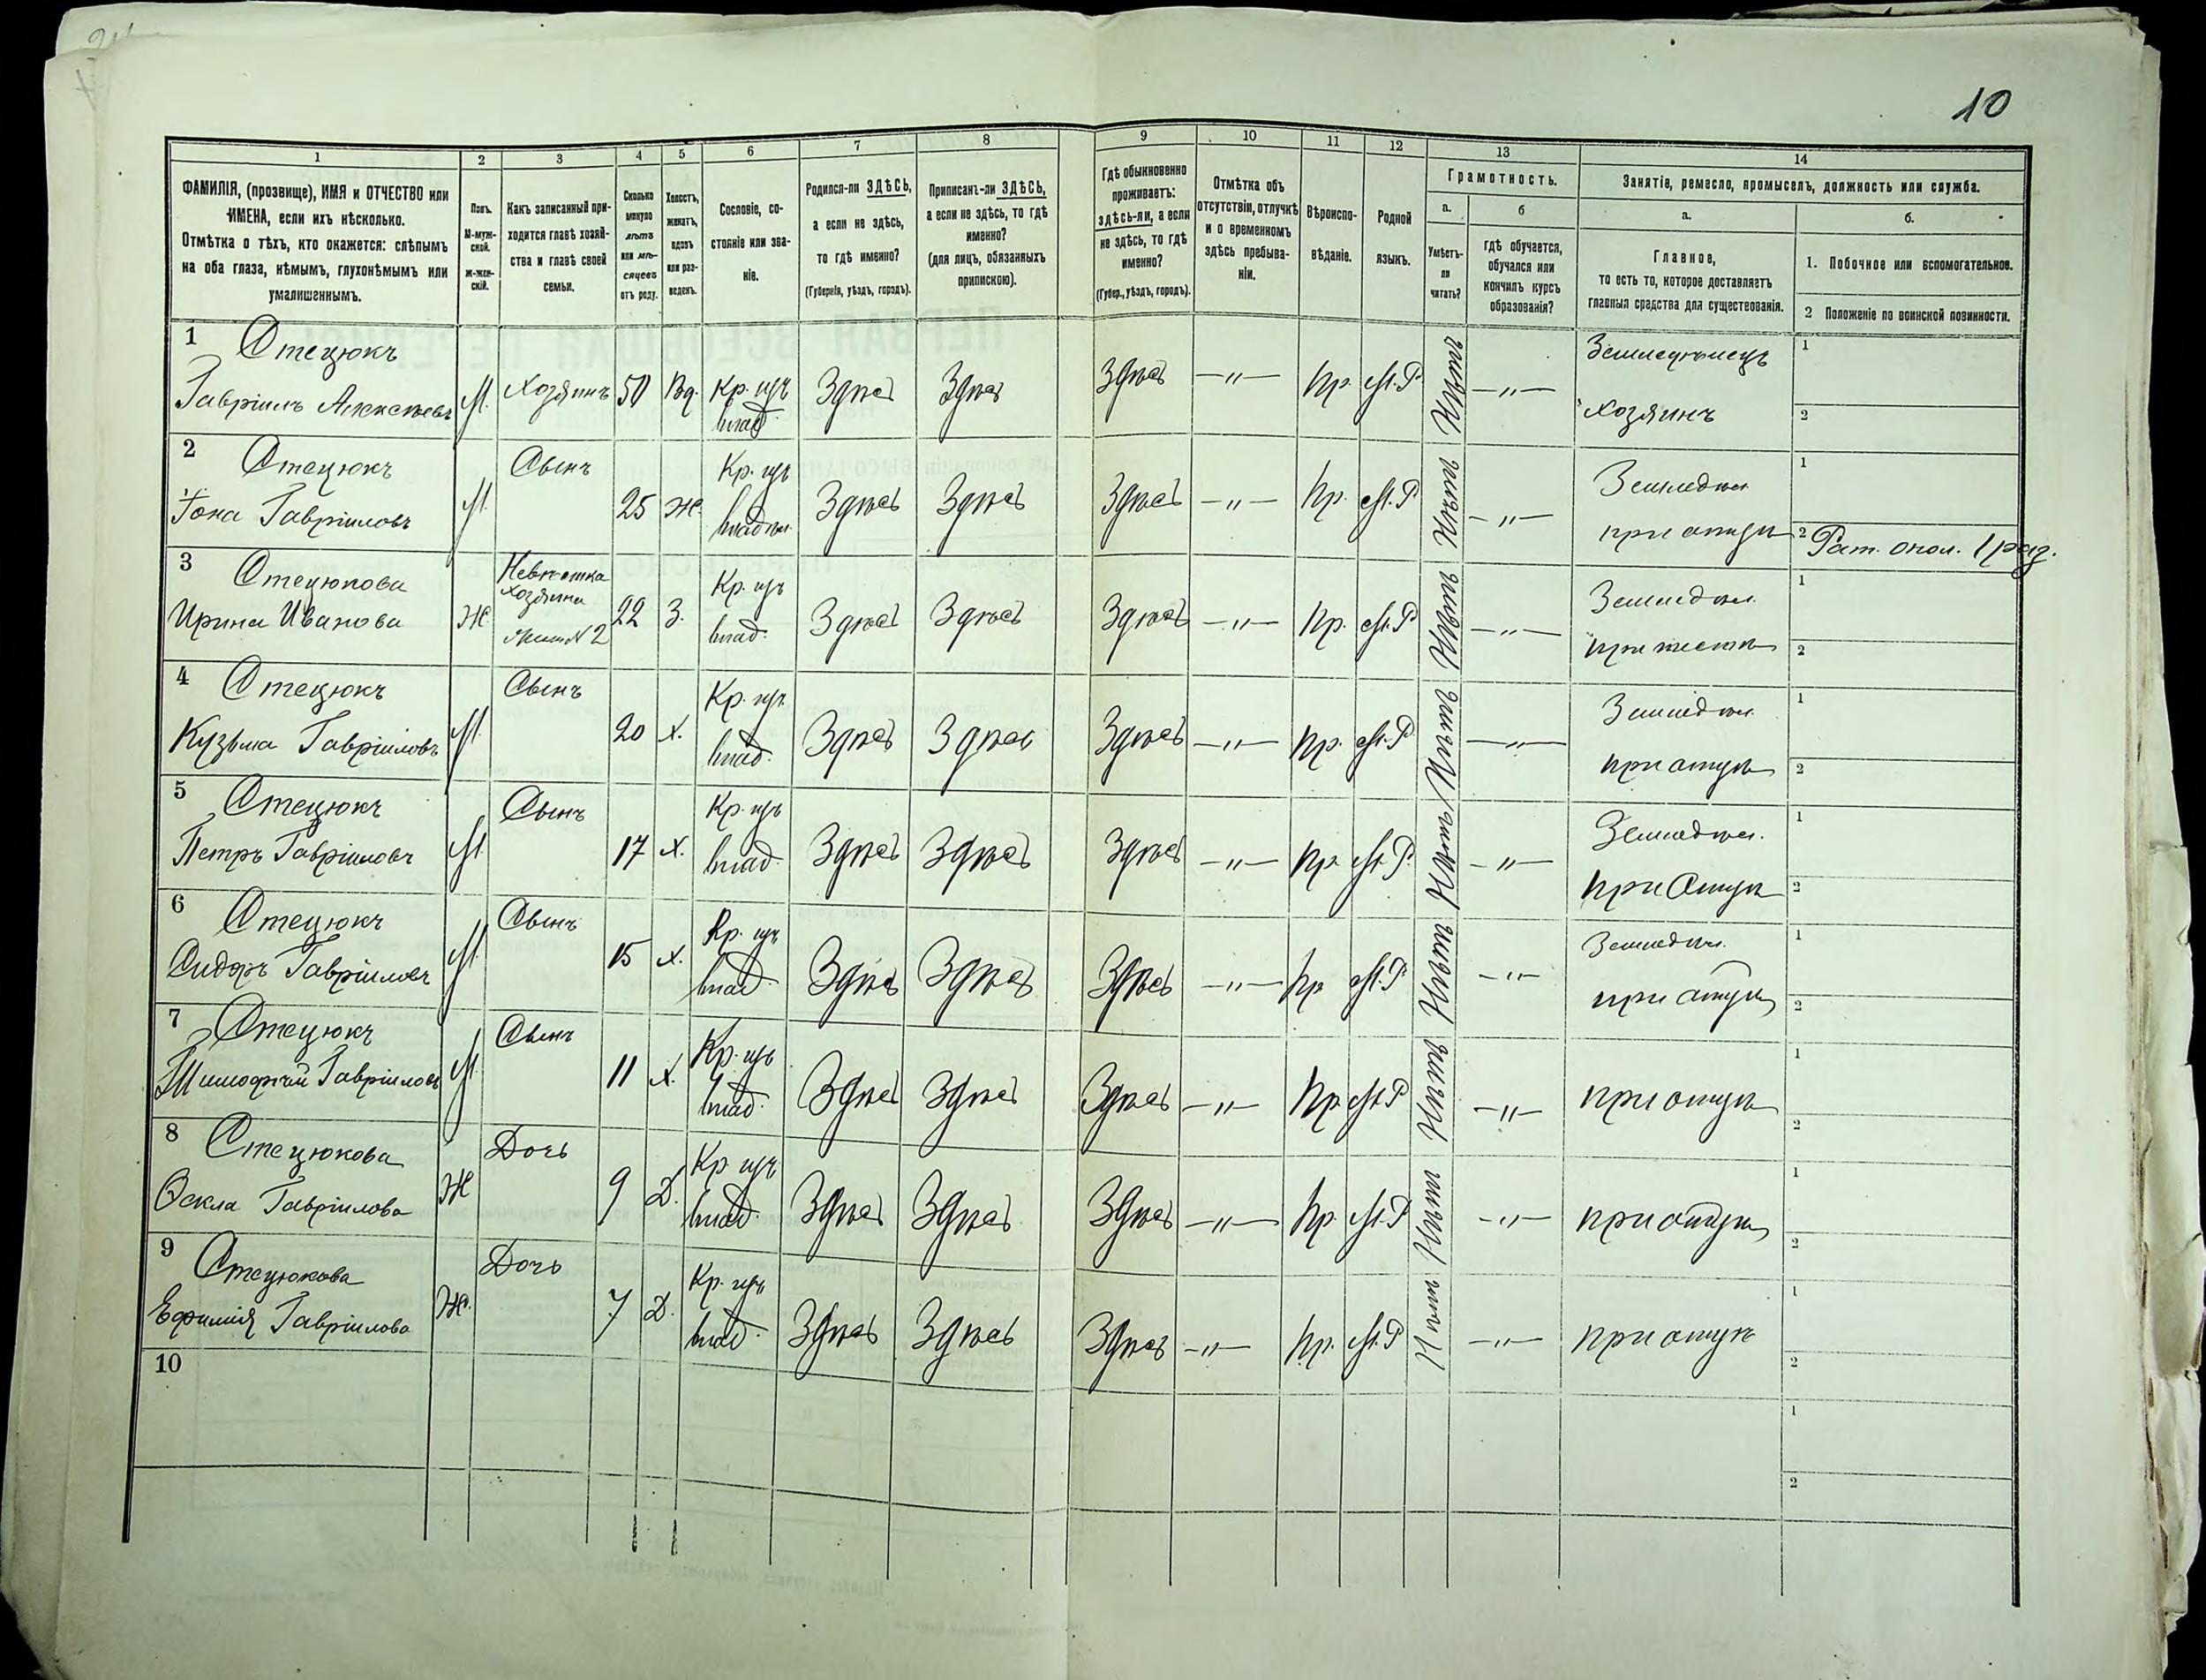 10
1 2 3 4 5 6 7 8 9 10 11 12 13 14
ФАМИЛІЯ, (прозвище), ИМЯ и ОТЧЕСТВО или
ИМЕНА, если ихъ нѣсколько.
Отмѣтка о тѣхъ, кто окажется: слѣпымъ
на оба глаза, нѣмымъ, глухонѣмымъ или
умалишеннымъ.
Полъ.
М-муж-
ской.
Ж-жен-
скій.
Какъ записанный при-
ходится главѣ хозяй-
ства и главѣ своей
семьи.
Сколько
минуло
лѣтъ
или мѣ-
сяцевъ
отъ роду.
Холостъ,
женатъ,
вдовъ
или раз-
веденъ.
Сословіе, со-
стояніе или зва-
ніе.
Родился-ли ЗДѢСЬ,
а если не здѣсь,
то гдѣ именно?
(Губернія, уѣздъ, городъ).
Приписанъ-ли ЗДѢСЬ,
а если не здѣсь, то гдѣ
именно?
(для лицъ, обязанныхъ
припискою).
Гдѣ обыкновенно
проживаетъ:
здѣсь-ли, а если
не здѣсь, то гдѣ
именно?
(Губер., уѣздъ, городъ).
Отмѣтка объ
отсутствіи, отлучкѣ
и о временномъ
здѣсь пребыва-
ніи.
Вѣроиспо-
вѣданіе.
Родной
языкъ.
Грамотность.
а.
Умѣетъ-
ли
читать?
б
гдѣ обучается,
обучался или
кончилъ курсъ
образованія?
Занятіе, ремесло, промыселъ, должность или служба.
а.
Главное,
то есть то, которое доставляетъ
главныя средства для существованія.
б.
1. Побочное или вспомогательное.
2 Положеніе по воинской повинности.
1 Стецюкъ
Гавріилъ Алексѣевъ М. Хозяинъ 50 Вд. Кр. изъ влад. Здѣсь Здѣсь Здѣсь —"— Пр. М.Р. Нѣтъ —"— Земледѣлецъ хозяинъ 1 2
2 Стецюкъ
Іона Гавріиловъ М. Сынъ 25 Ж. Кр. изъ владѣл. Здѣсь Здѣсь Здѣсь —"— Пр. М.Р. Нѣтъ —"— Земледѣл. при отцѣ 1 2 Рат. опол. 1 раз.
3 Стецюкова
Ирина Иванова Ж. Невѣстка хозяина жена №2 22 З. Кр. изъ влад. Здѣсь Здѣсь Здѣсь —"— Пр. М.Р. Нѣтъ —"— Земледѣл. при тестѣ 1 2
4 Стецюкъ
Кузьма Гавріиловъ М. Сынъ 20 Х. Кр. изъ влад. Здѣсь Здѣсь Здѣсь —"— Пр. М.Р. Нѣтъ —"— Земледѣл. при отцѣ 1 2
5 Стецюкъ
Петръ Гавріиловъ М. Сынъ 17 Х. Кр. изъ влад. Здѣсь Здѣсь Здѣсь —"— Пр. М.Р. Нѣтъ —"— Земледѣл. при Отцѣ 1 2
6 Стецюкъ
Сидоръ Гавріиловъ М. Сынъ 15 Х. Кр. изъ влад. Здѣсь Здѣсь Здѣсь —"— Пр М.Р Нѣтъ —"— Земледѣл. при отцѣ 1 2
7 Стецюкъ
Тимофѣй Гавріиловъ М. Сынъ 11 Х. Кр. изъ влад. Здѣсь Здѣсь Здѣсь —"— Пр М.Р Нѣтъ —"— при отцѣ 1 2
8 Стецюкова
Ѳекла Гавріилова Ж Дочь 9 Д. Кр. изъ влад. Здѣсь Здѣсь Здѣсь —"— Пр. М.Р Нѣтъ —"— при отцѣ 1 2
9 Стецюкова
Ефимія Гавріилова Ж. Дочь 7 Д. Кр. изъ влад. Здѣсь Здѣсь Здѣсь —"— Пр. М.Р Нѣтъ —"— при отцѣ 1 2
10 1 2